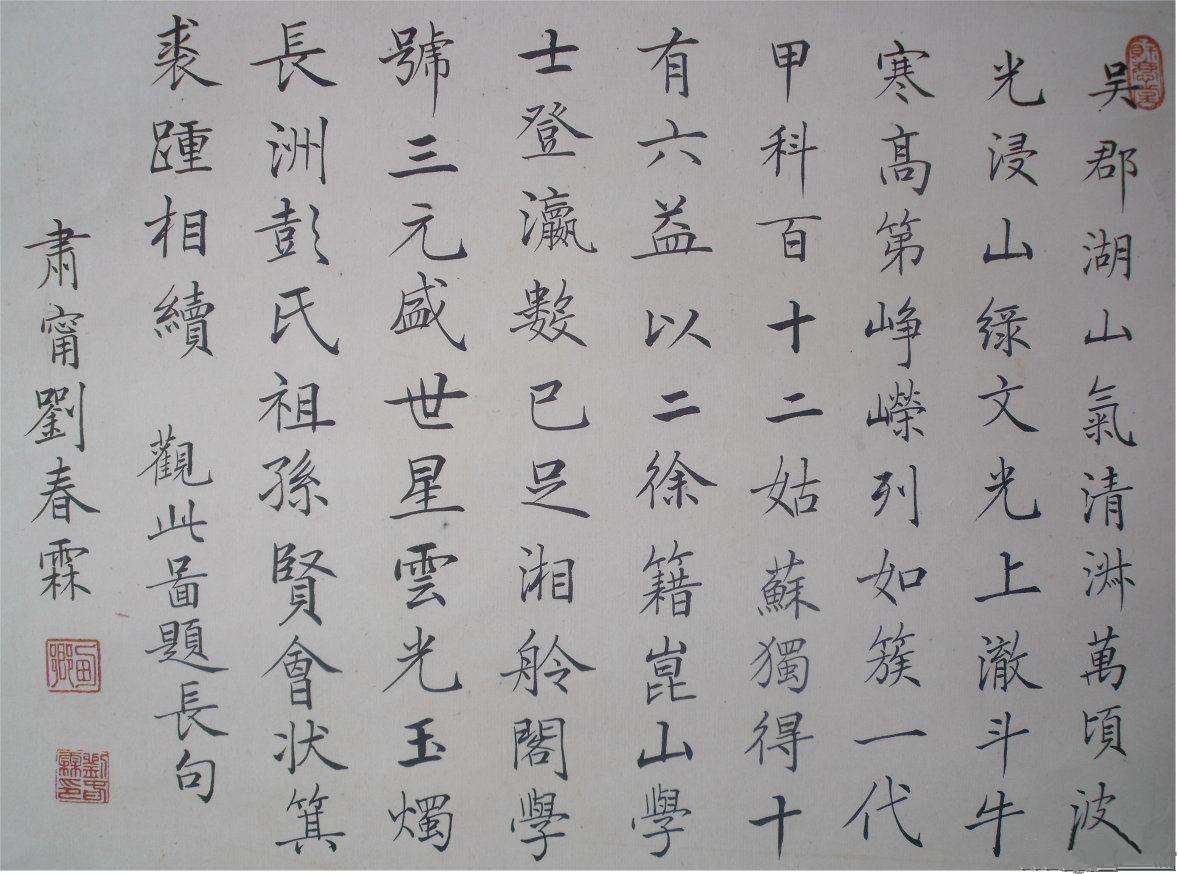 吳郡湖山氣清淋萬頃波
光浸山綠文光上澈斗牛
寒高第崢嶸列如簇一代
甲科百十二姑蘇獨得十
有六益以二徐籍崑山學
士登瀛數已足湘舲閣學
號三元盛世星雲光玉燭
長洲彭氏祖孫賢會狀箕
裘踵相續 觀此啚題長句
肅甯劉春霖